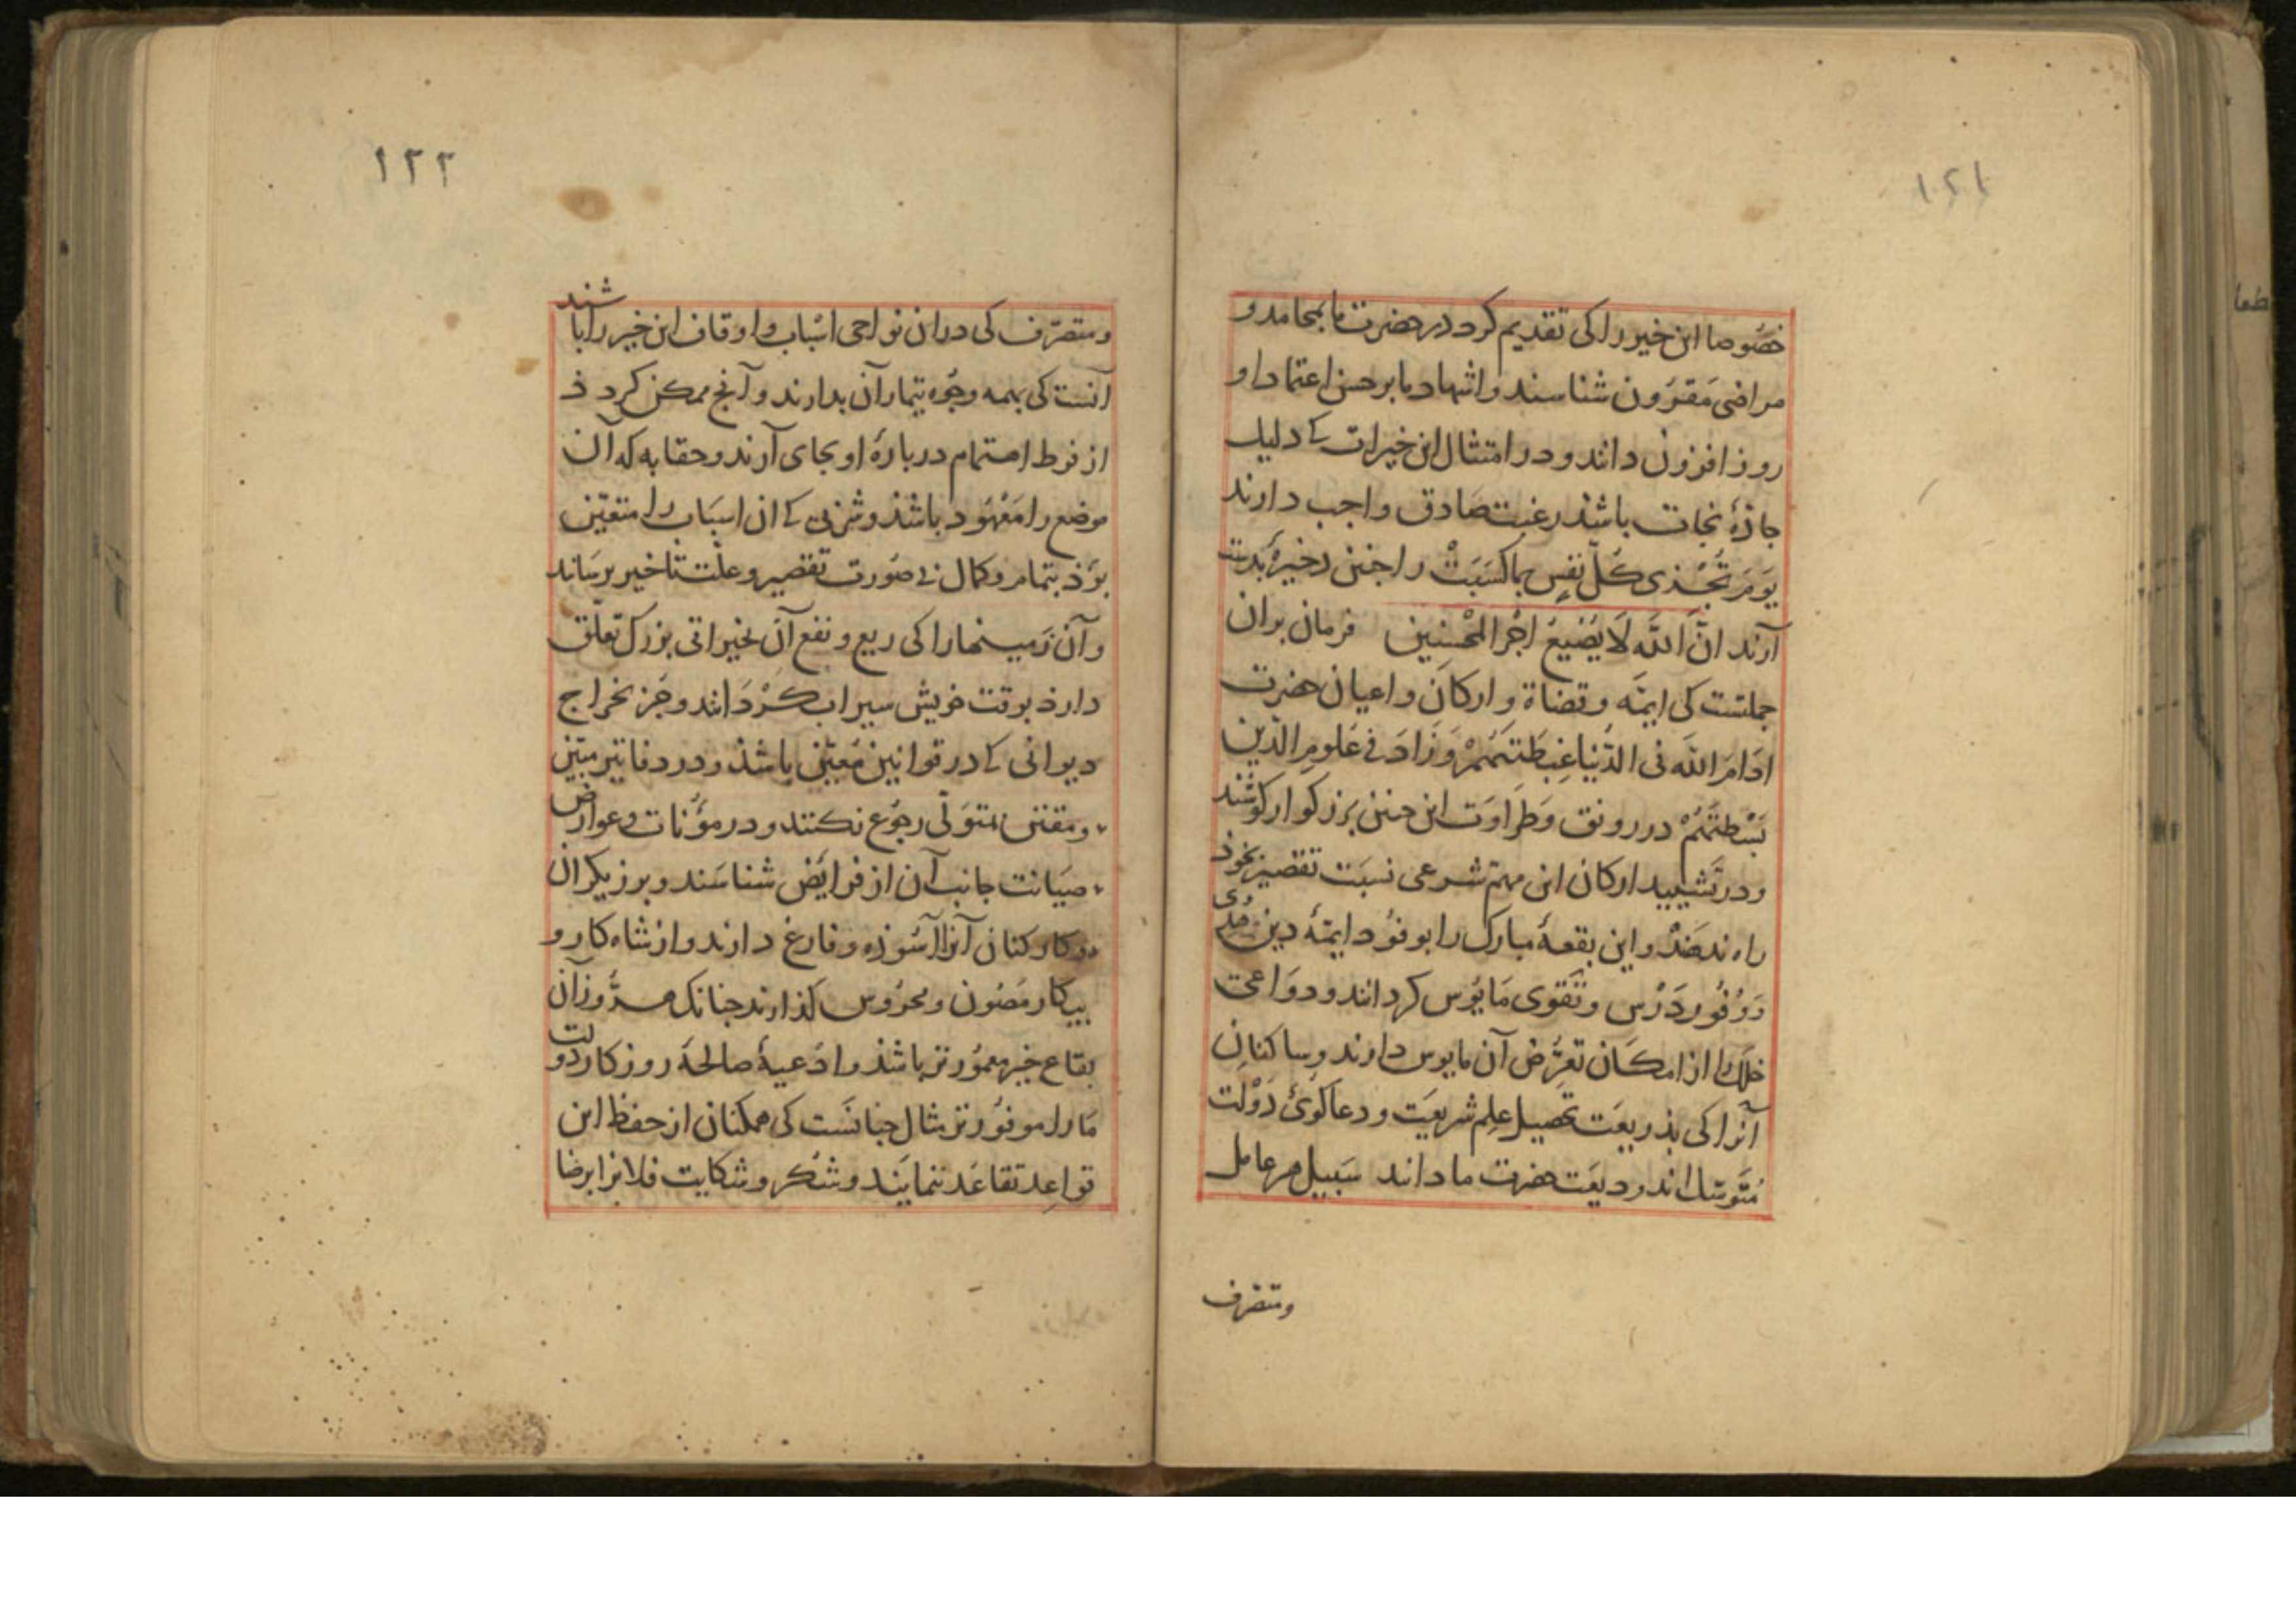 ۱۲۱
خصُوصا این خیر را کی تقدیم کرد در حضرت ما بمحامد و
مراضی مَقرُون شناسند و اشهاد ما بر حسن اعتماد او
روز افزون دانند و در امتثال این خیرات کے دلیل
جاذهٔ نجات باشذ رغبت صَادق واجب دارند
یَومَ تُجْذی کُلّ نَفسٍ بماکَسَبَتْ را جنین ذخیرهٔ بدست
آرند انَّ اللّه لَا یُضیعُ اجْرَ المحْسِنِین فرمان بران
جملتست کی ایمّه و قضاة و ارکان و اعیان حضرت
ادَامَ اللّه فی الدُّنیا غِبطَتَهُمْ وَ زَادَ فے عُلومِ الدّین
بَسْطَتَهُمْ در رونق وَ طَرَاوَت این جنین بزرکوار کوشند
و در تَشیید ارکان این مهمّ شرعی نسبَت تقصیر بخوذ
راه ندهَنْد و این بقعهٔ مبارک را بوفوُد ایمّهٔ دین هُدی
وَ وُفُور دَرْس و تَقوی مَانُوس کردانند و دواعی
خلَل را از امکَان تعرُّض آن مایوس دارند و ساکنانِ
آنرا کی بذریعَت تحصیل علِم شریعَت و دعا کوئ دَوْلت
مُتَوسّل اند ودیعَت حضرت ما دانند سَبیل هر عامل
ومتصرف
۱۲۲
و متصرّف کی در ان نواحی اسْباب و اوقاف این خیر را باشند
آنست کی بهمه وجُوه تیمار آن بدارند و آنج ممکن کرد ذ
از فرط اهتمام دربارهٔ او بجای آرند و حقابه که آن
موضع را مَعْهُود باشذ و شربی کے ان اسبَاب را متعیّن
بوَذ بتمام و کمال بے صُورت تقصیر و علّت تاخیر برسَانند
و آن زَمینهارا کی ریع و نفع آن بخیراتی بزرک تعلّق
دارذ بوقت خویش سیراب کرْدَانند و جُز بخراج
دیوانی کے در قوانین مُعیّن باشذ و در دفاتیر مبیّن
و مقنّن بمتوَلّی رجوُع نکنند و در مؤُنات و عوارض
صیَانت جانب آن از فرایَض شناسَند و برزیکران
و کارکنان آنرا آسُوذه و فارغ دارند و از شاه کار و
بیکار مَصُون و محرُوس کذارند جنانک هر روز آن
بقاع خیر معمُورتر باشذ و ادْعیهٔ صالحهٔ روزکار دولت
مَا را موفُورتر مثال جنانَست کی همکنان از حفظ این
قواعِد تقاعُد ننمایَند و شُکر و شکایت فلانرا برضا